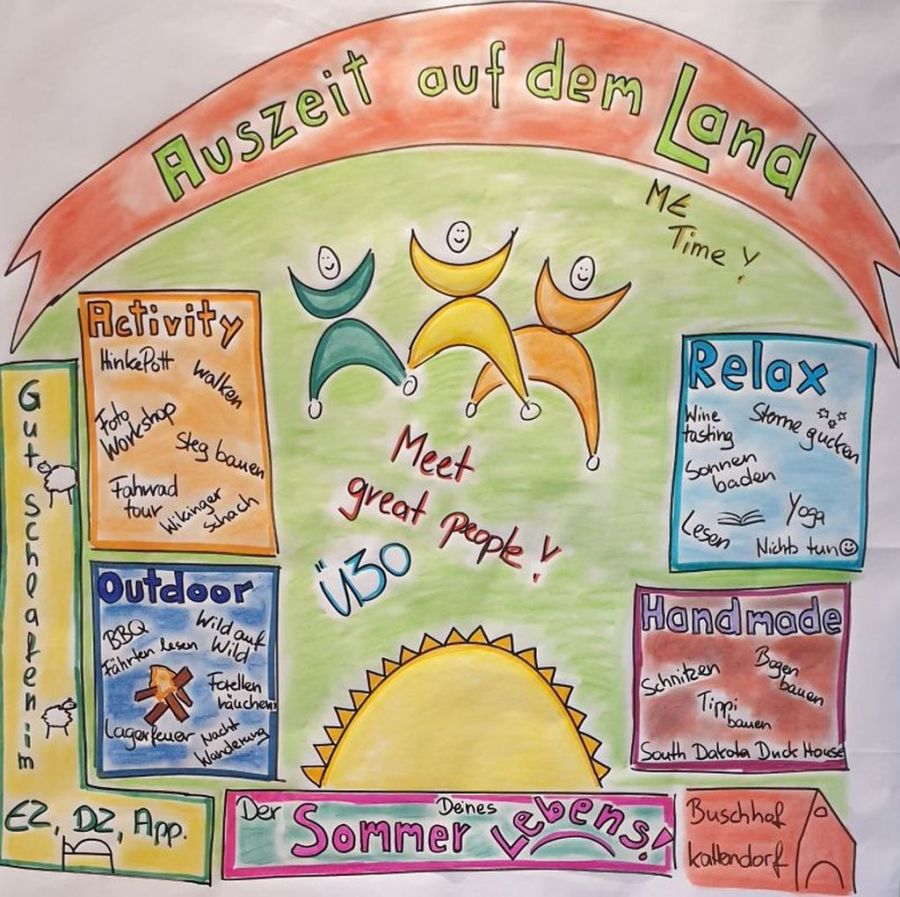 Auszeit auf dem Land
ME
Time!
Activity
HinkePott
walken
Foto
Workshop
Steg bauen
Fahrrad
tour
Wikinger
schach
Relax
Wine
tasting
Sterne gucken
Sonnen
baden
Yoga
Lesen
Nichts tun
Meet
great people!
Ü30
Gut schlafen im
EZ, DZ, App.
Outdoor
BBQ
Wild auf
Wild
Fährten lesen
Forellen
räuchern
Lagerfeuer
Nacht
Wanderung
Handmade
Schnitzen
Bogen
bauen
Tippi
bauen
South Dakota Duck House
Der Sommer Deines Lebens!
Buschhof
Kattendorf